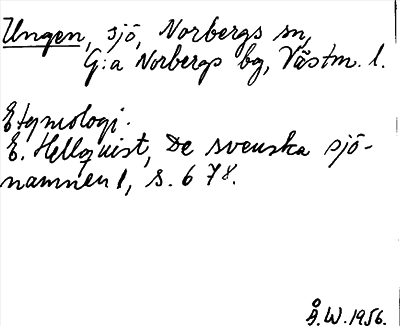 Ungen, sjö, Norbergs sn,
G:a Norbergs bg, Västm. l.
Etymologi.
E. Hellquist, De svenska sjö-
namnen 1, s. 678.
Å.W. 1956.